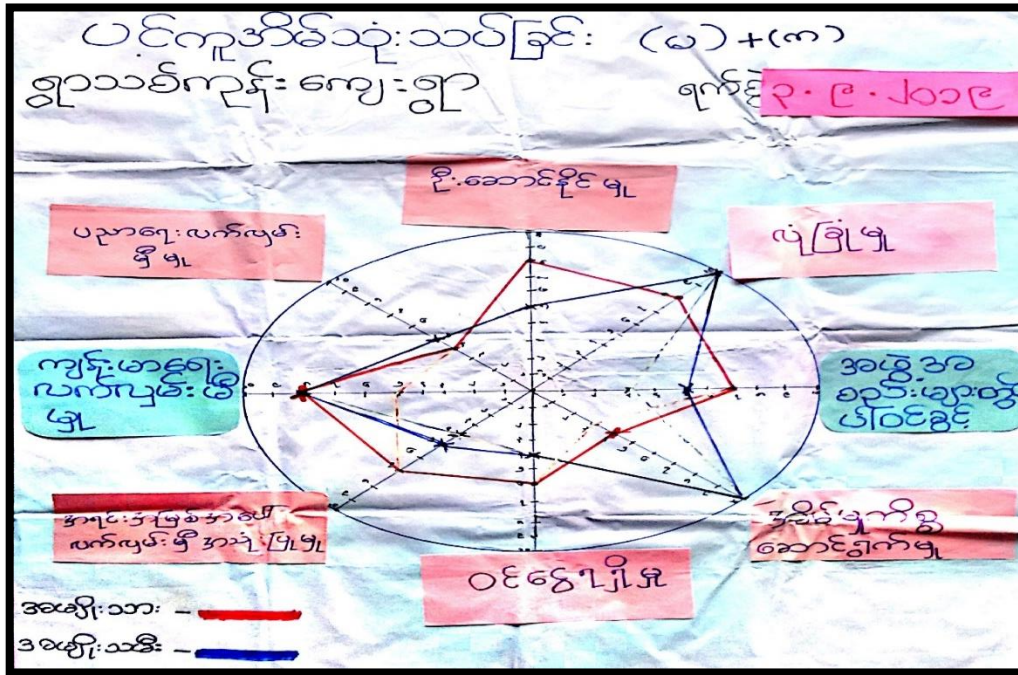 ပင့်ကူအိမ်သုံးသပ်ခြင်း (မ)+(ကာ)
ရွာသစ်ကုန်းကျေးရွာ
ရက်စွဲ ၃.၉.၂၀၁၉
ဦးဆောင်နိုင်မှု
ပညာရေးလက်လှမ်း
မှီမှု
လုံခြုံမှု
ကျန်းမာရေး
လက်လှမ်းမှီ
မှု
အဖွဲ့အ
စည်းများတွင်
ပါဝင်ခွင့်
အရင်းအမြစ်အပေါ်
လက်လှမ်းမှီအသုံးပြုမှု
ဝင်ငွေရရှိမှု
အိမ်မှုကိစ္စ
ဆောင်ရွက်မှု
အမျိုးသား -
အမျိုးသမီး -